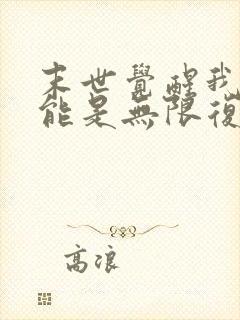 末世覺醒我
能是無限復
高浪